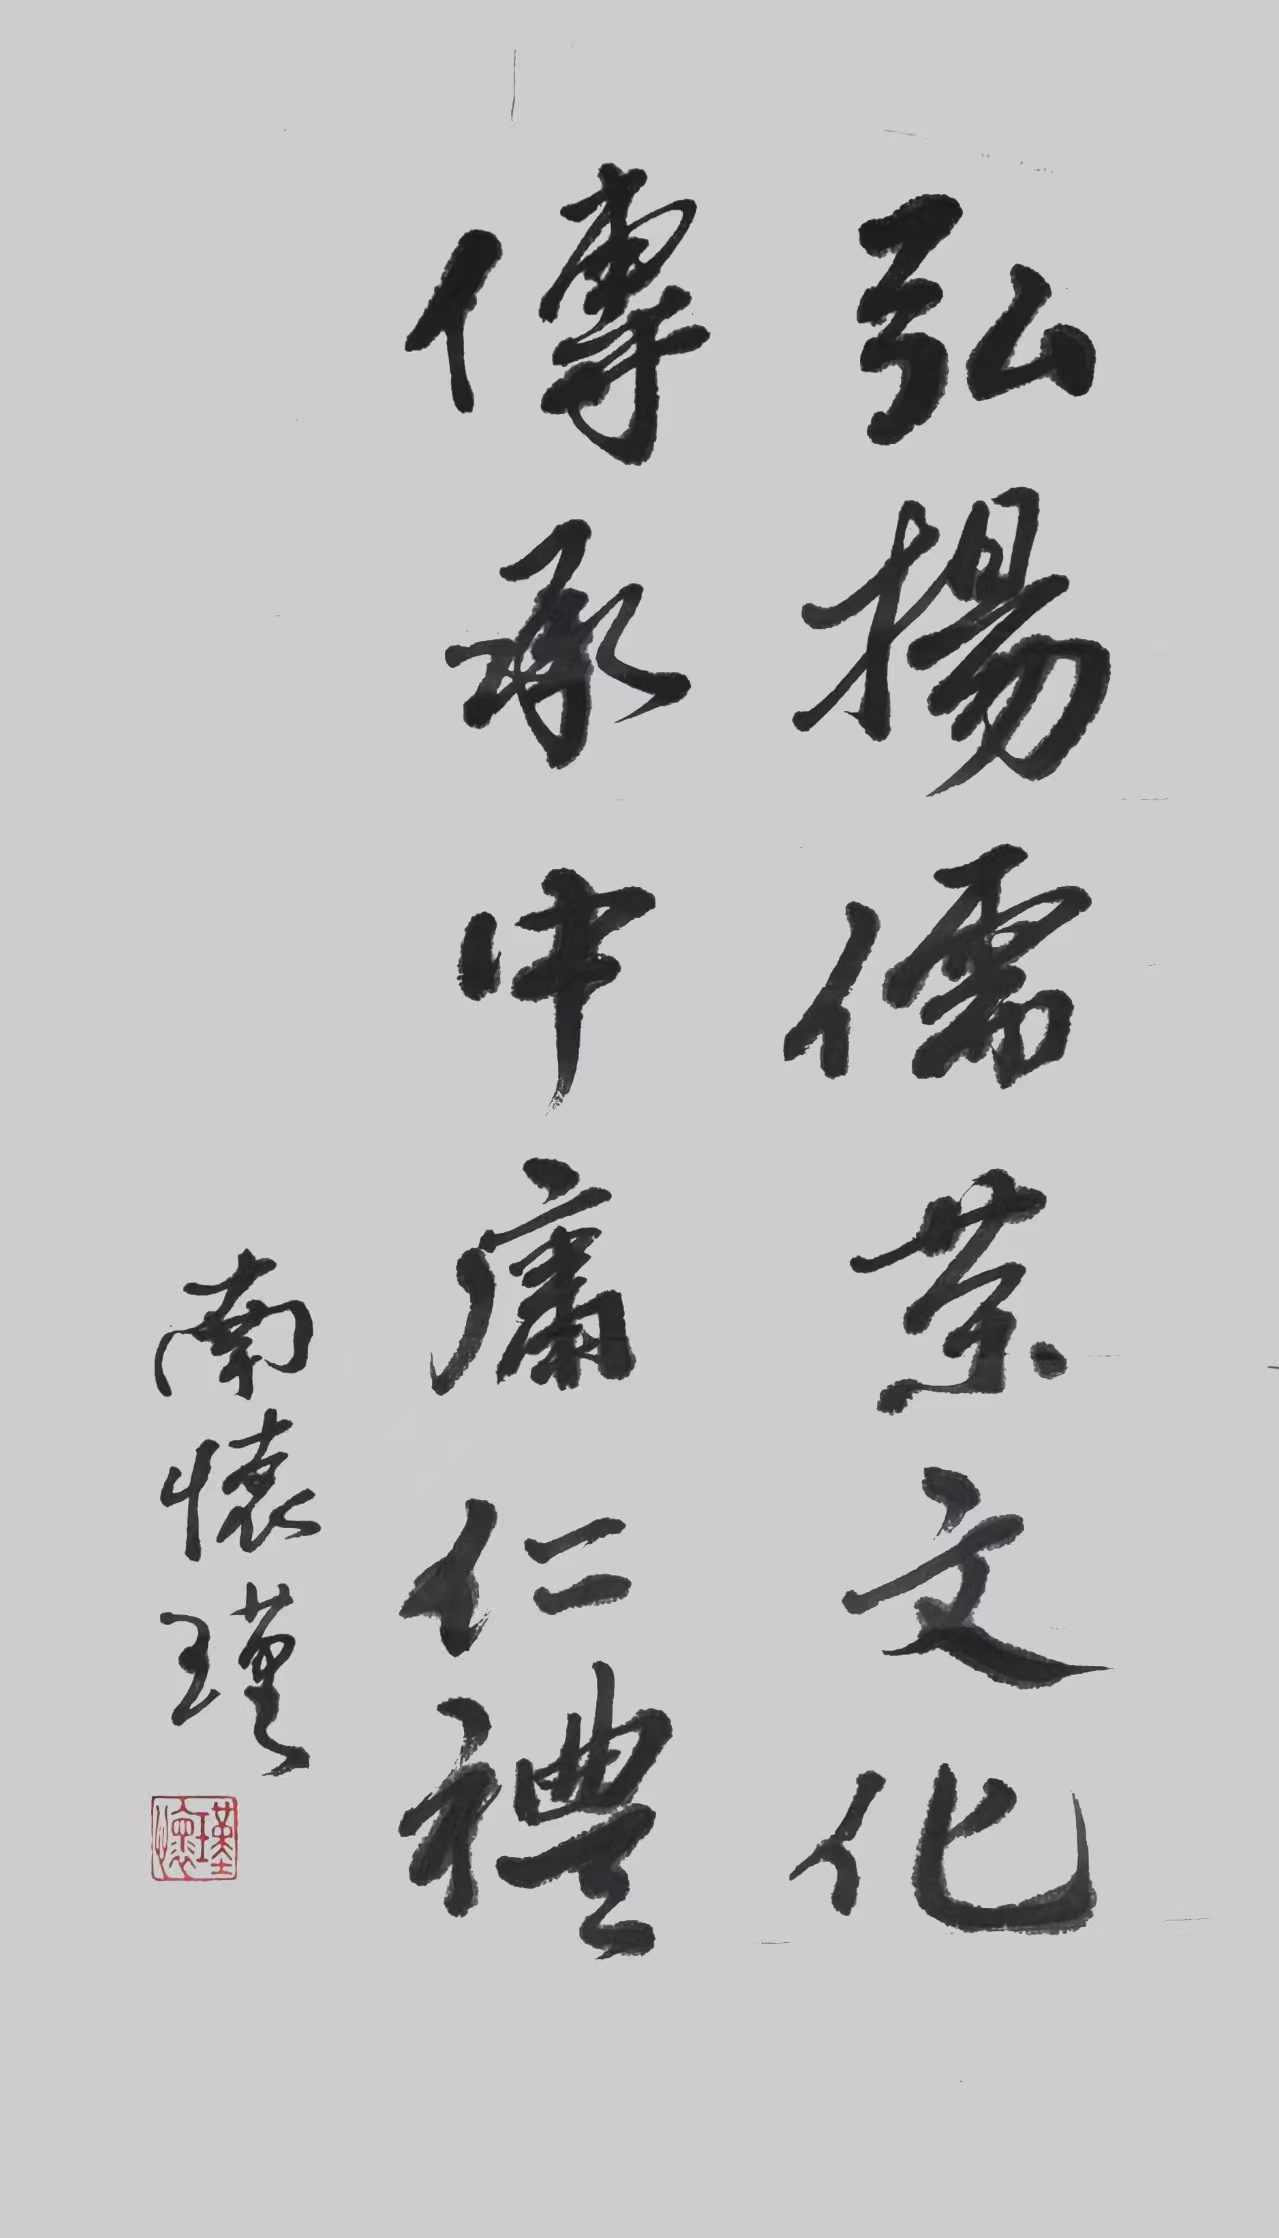 弘揚儒茶文化
傳承中庸仁禮
南懷瑾
懷瑾